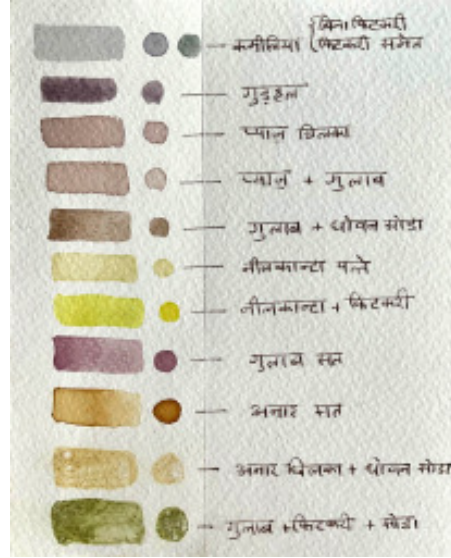 कमीलिया { बिना फिटकरी
फिटकरी समेत
गुड़हल
प्याज़ छिलका
प्याज़ + गुलाब
गुलाब + धोवन सोडा
नीलकान्टा पत्ते
नीलकान्टा + फिटकरी
गुलाब सत
अनार सत
अनार छिलका + धोवन सोडा
गुलाब +फिटकरी + सोडा